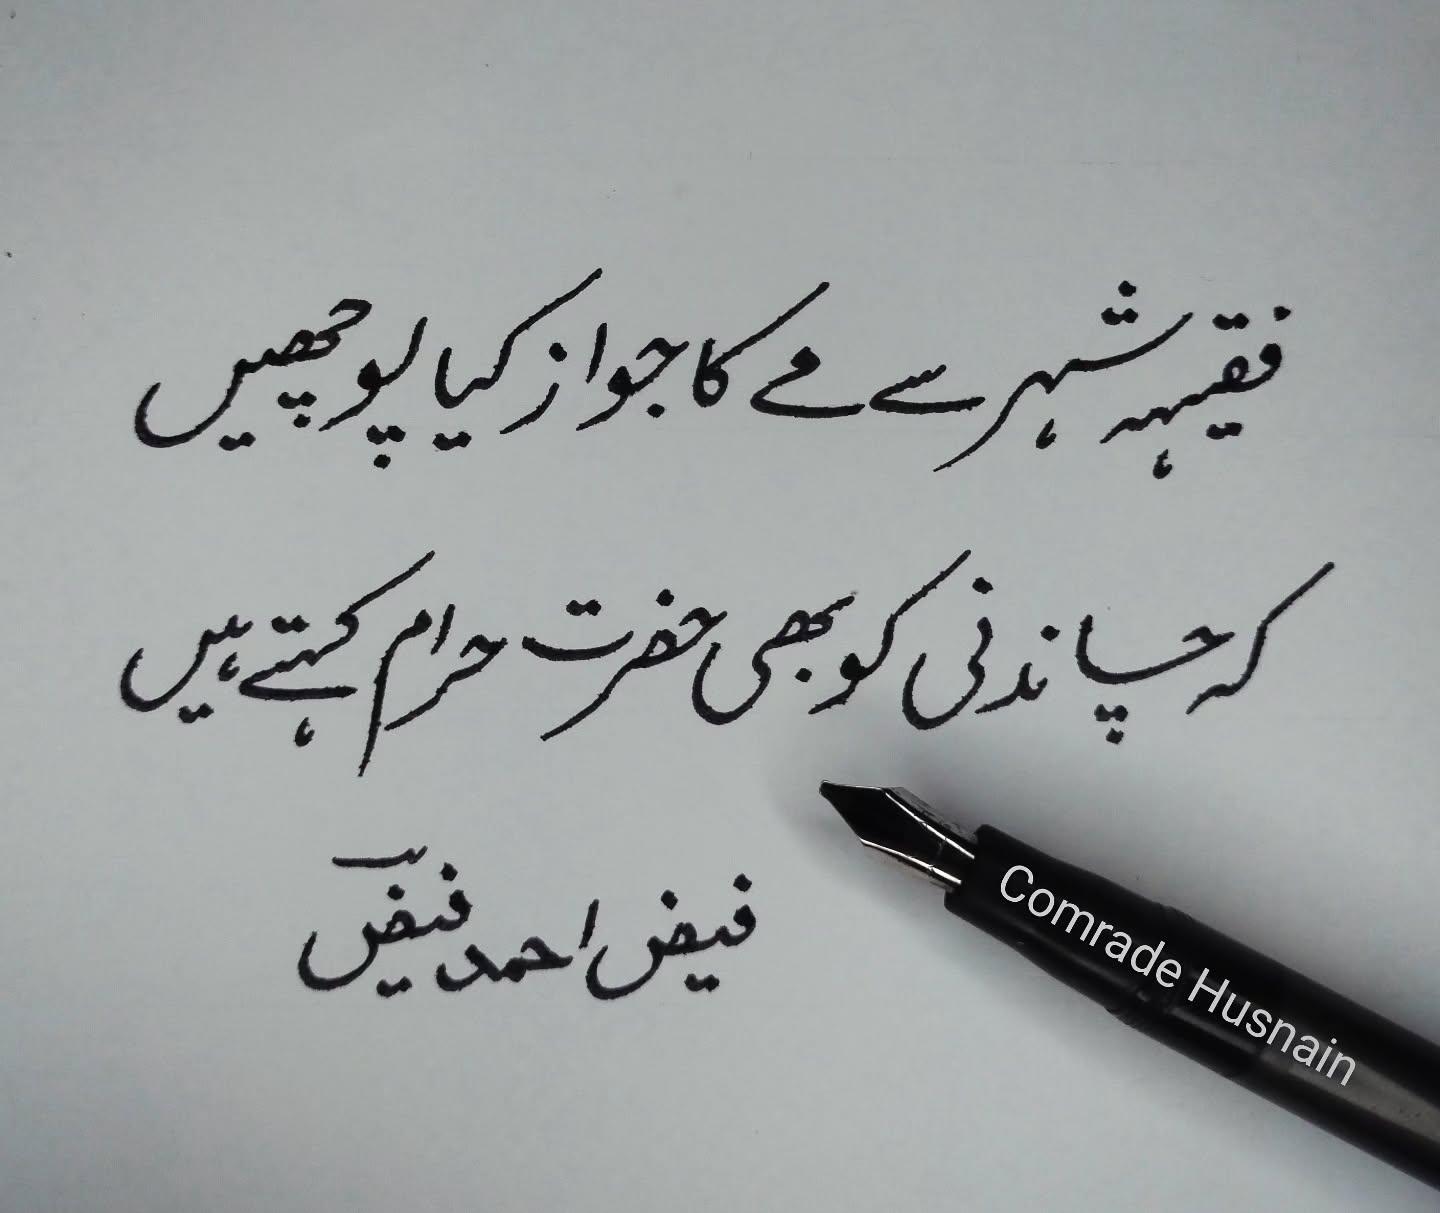 فقیہہ شہر سے مے کا جواز کیا پوچھیں
کہ چاندنی کو بھی حضرت حرام کہتے ہیں
فیض احمد فیضؔ
Comrade Husnain